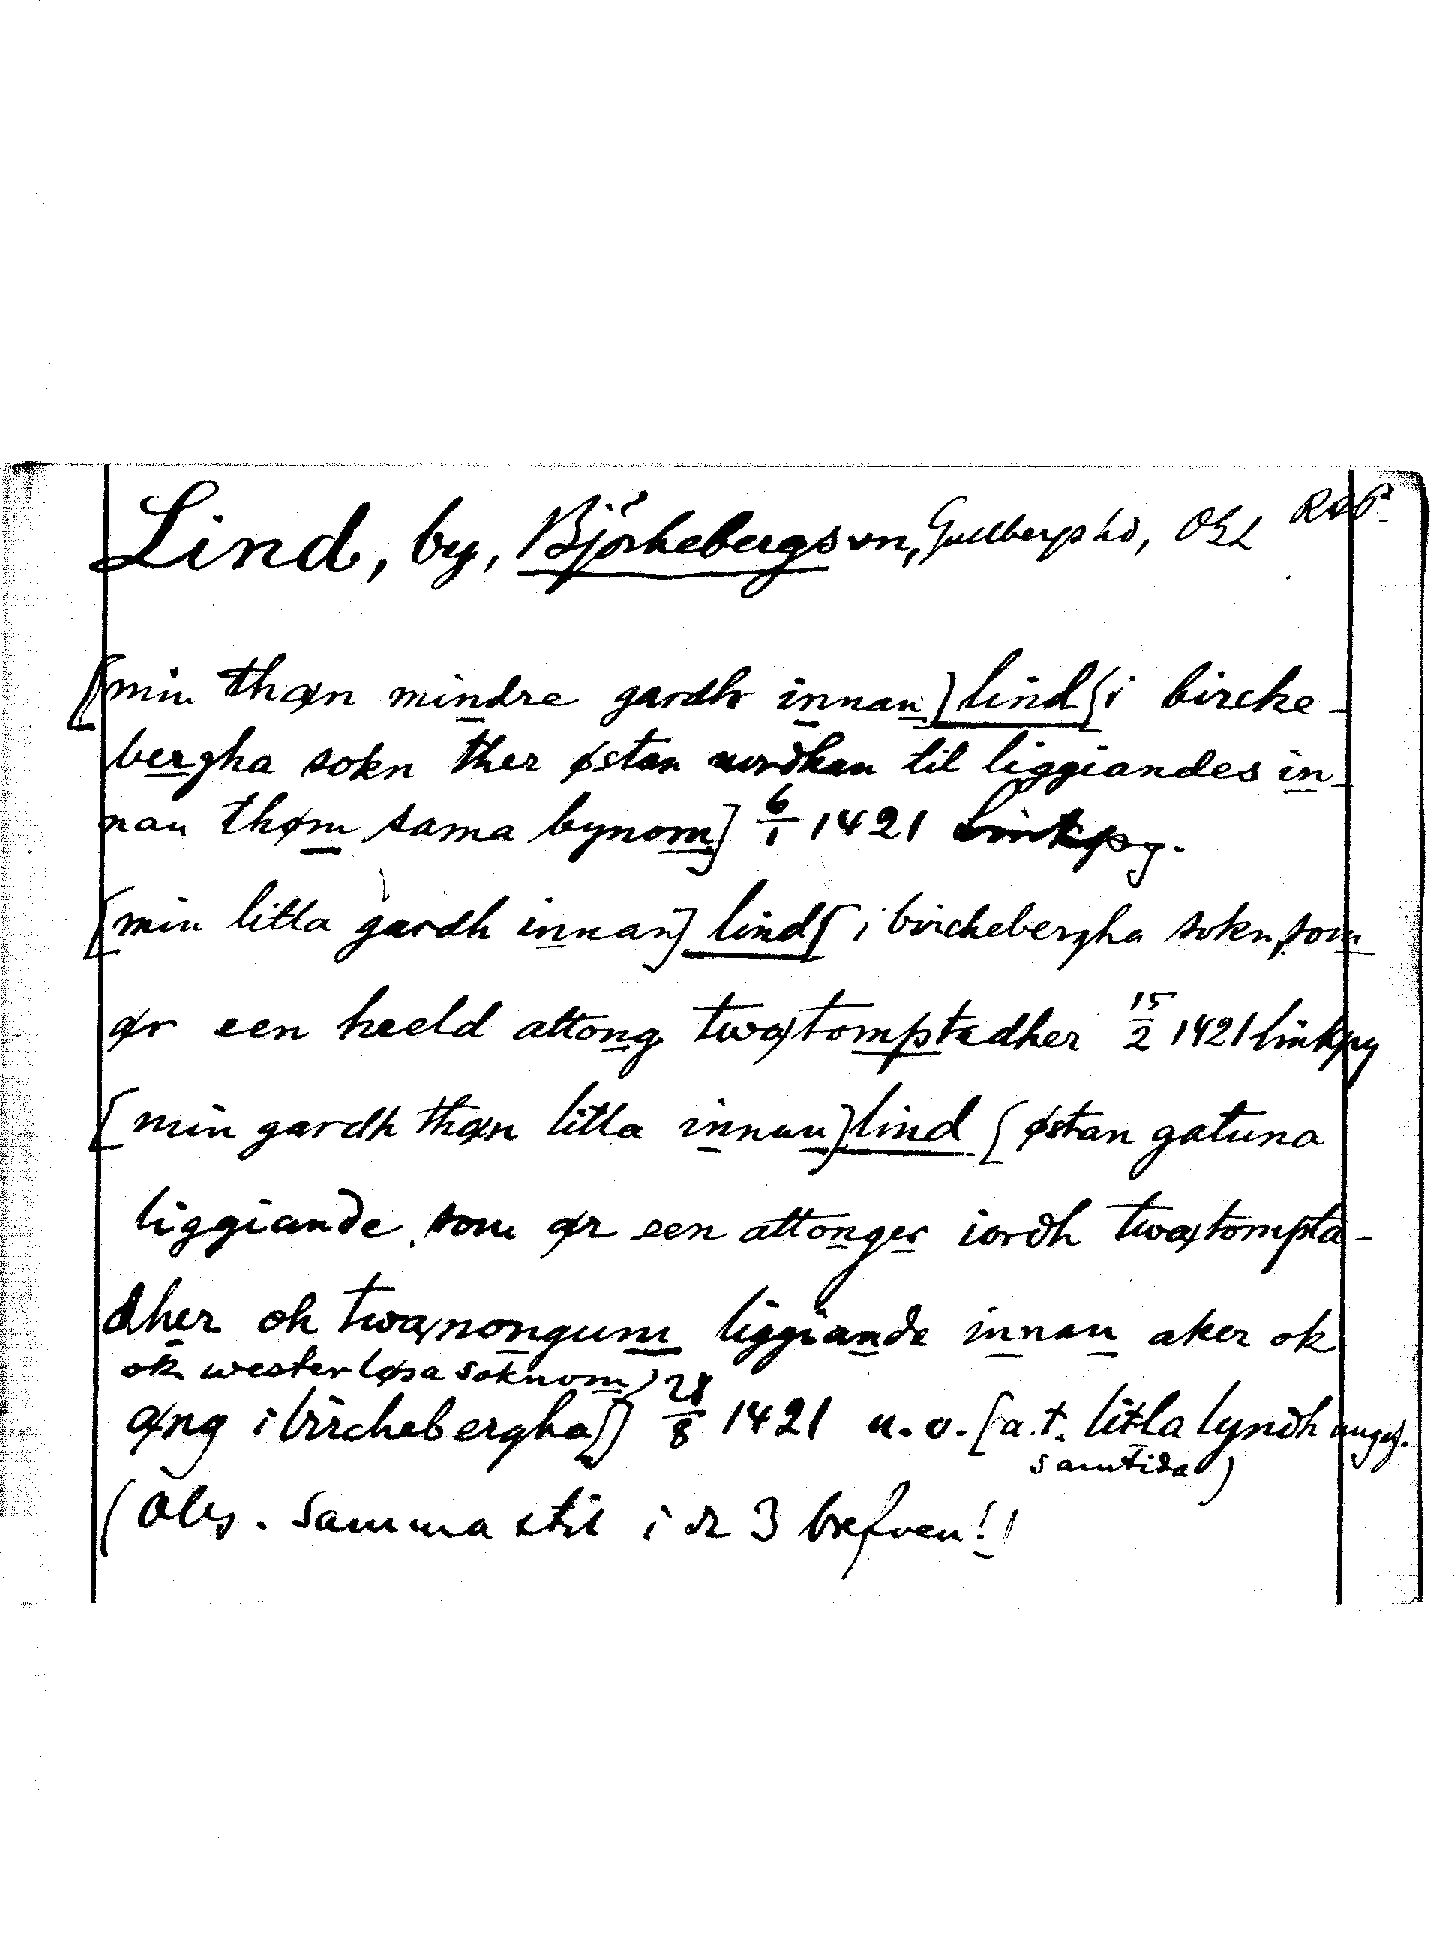 Lind, by, Björkebergs sn, Gullbergs hd, ÖGL RAP
[min thæn mindre gardh innan] lind [i bircke-
bergha sokn ther østan nordhan til liggiandes in-
nan thøm sama bynom] 6/1 1421 Linkpg.
[min litla gardh innan] lind [i birckebergha sokn, som
ær een heeld attong twa tomptadher 15/2 1421 linkpg
[min gardh thæn litla innan] lind [østan gatuna
liggiande som ær een attonger iordh twa tompta-
dher ok twa nongum liggiande innan aker ok
ok westerløsa soknom)
æng i birckebergha] 28/8 1421 u. o. [a.t. litla lyndh
samtida)
(Obs. Samma stil i de 3 brefven!!